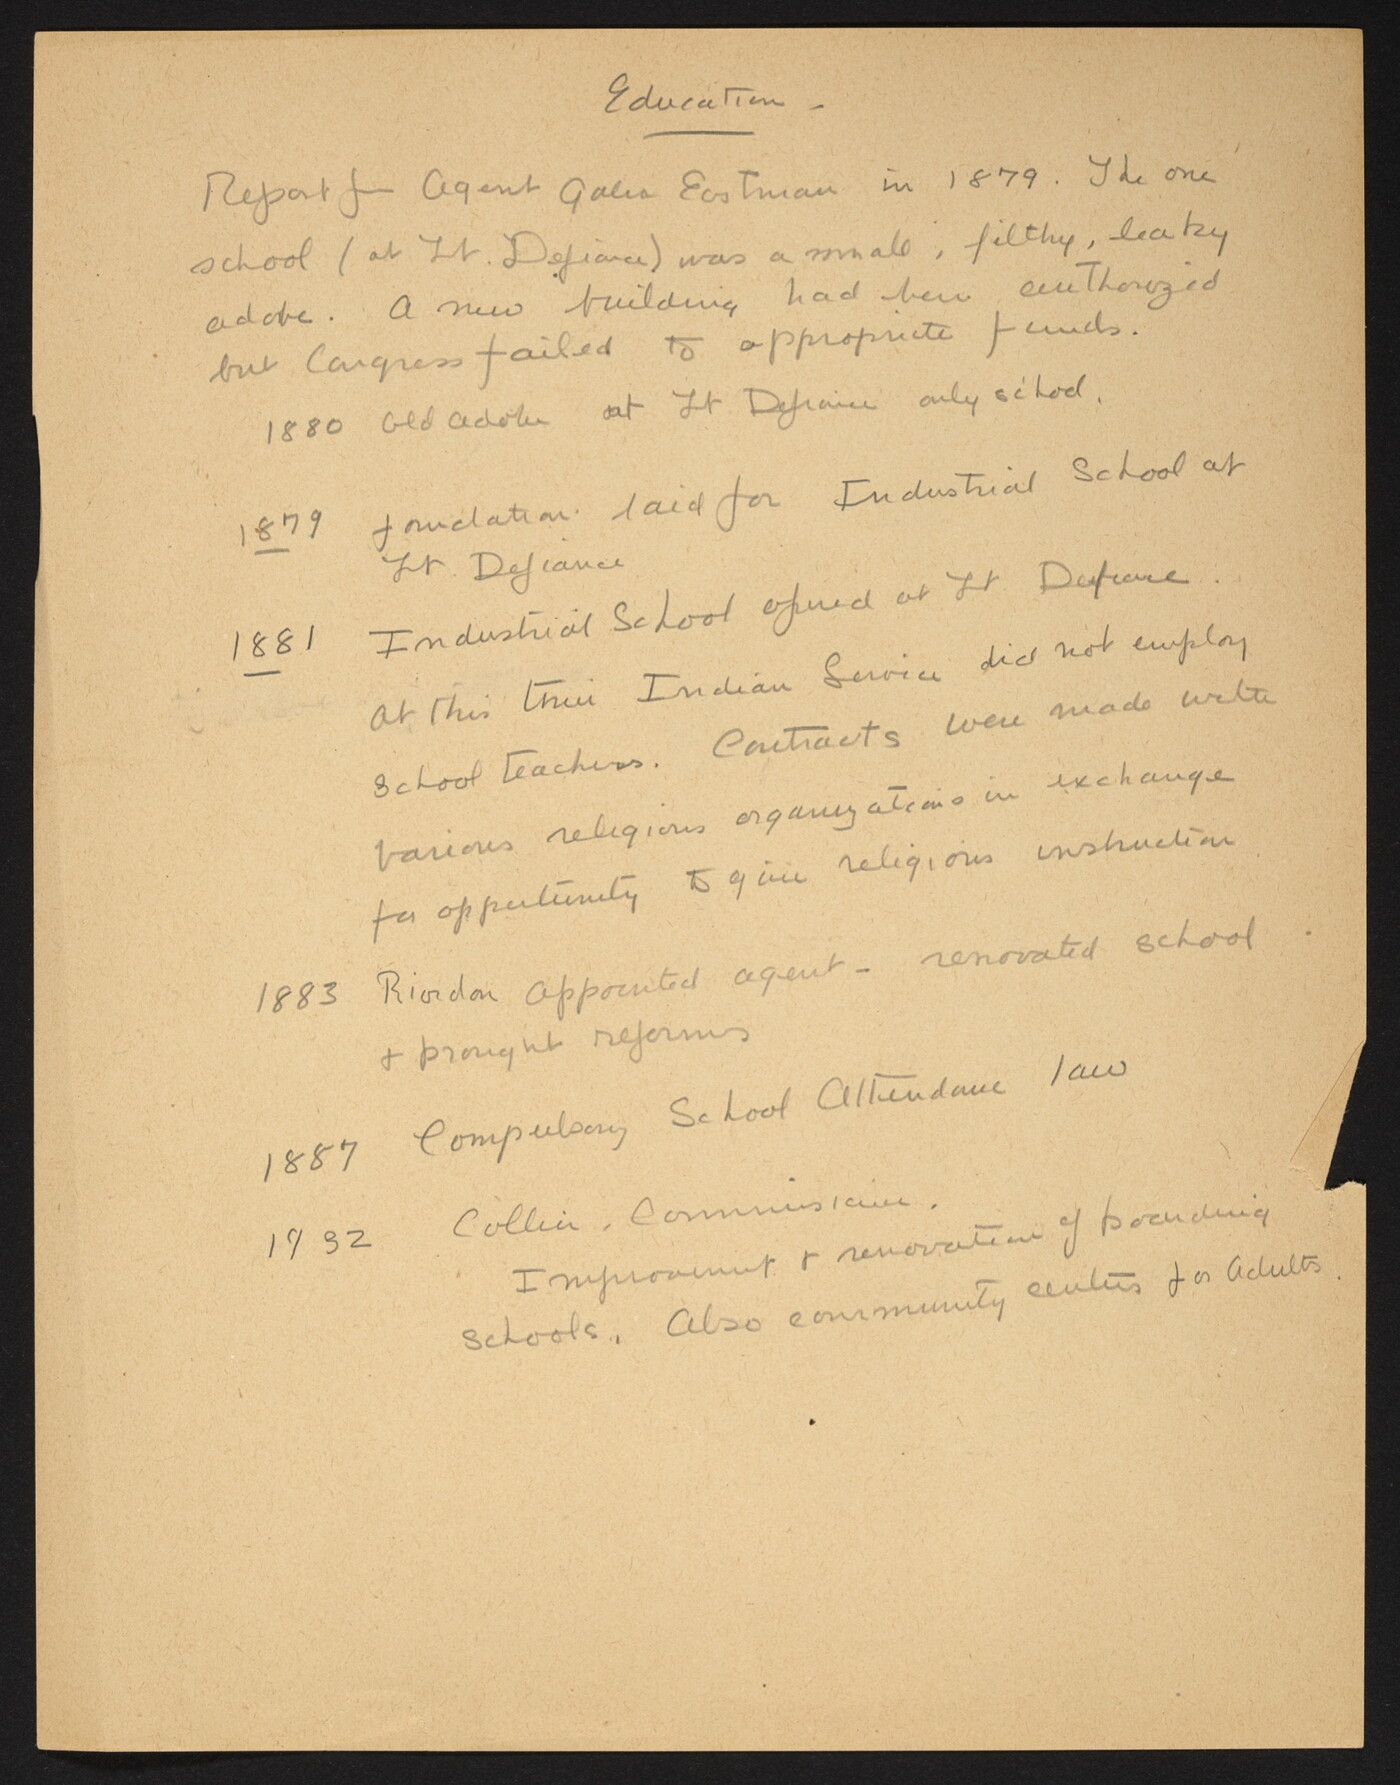 Education -
Report from Agent Galen Eastman in 1879. The one
school (at Ft. Defiance) was a small, filthy, leaky
adobe. A new building had been authorized
but Congress failed to appropriate funds.
1880 Old adobe at Ft Defiance only school.
1879 foundation laid for Industrial School at
Ft Defiance
1881 Industrial School opened at Ft Defiance.
At this time Indian Service did not employ
school teachers. Contracts were made with
various religious organizations in exchange
for opportunity to give religious instruction
1883 Riordon appointed agent - renovated school
+ brought reforms
1887 Compulsory School Attendance law
1932 Collier, Commissioner.
Improvement + renovation of boarding
schools. Also community centers for Adults.